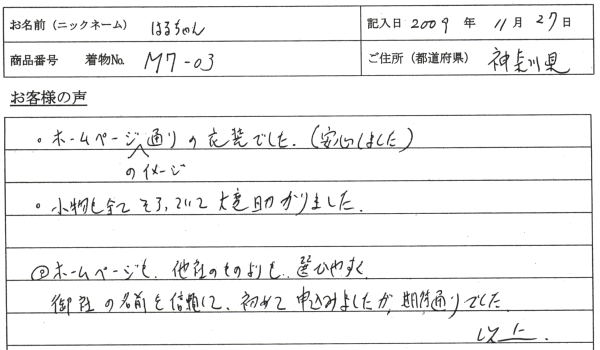 お名前（ニックネーム） はるちゃん 記入日 2009 年 11 月 27 日
商品番号 着物No. M7-03 ご住所（都道府県） 神奈川県
お客様の声
。ホームページ通りの衣装でした。（安心しました）
のイメージ
。小物も全てそろっていて大変助かりました。
◎ホームページも、他社のものよりも、選びやすく
御社の名前を信頼して、初めて申込みましたが、期待通りでした。
以上